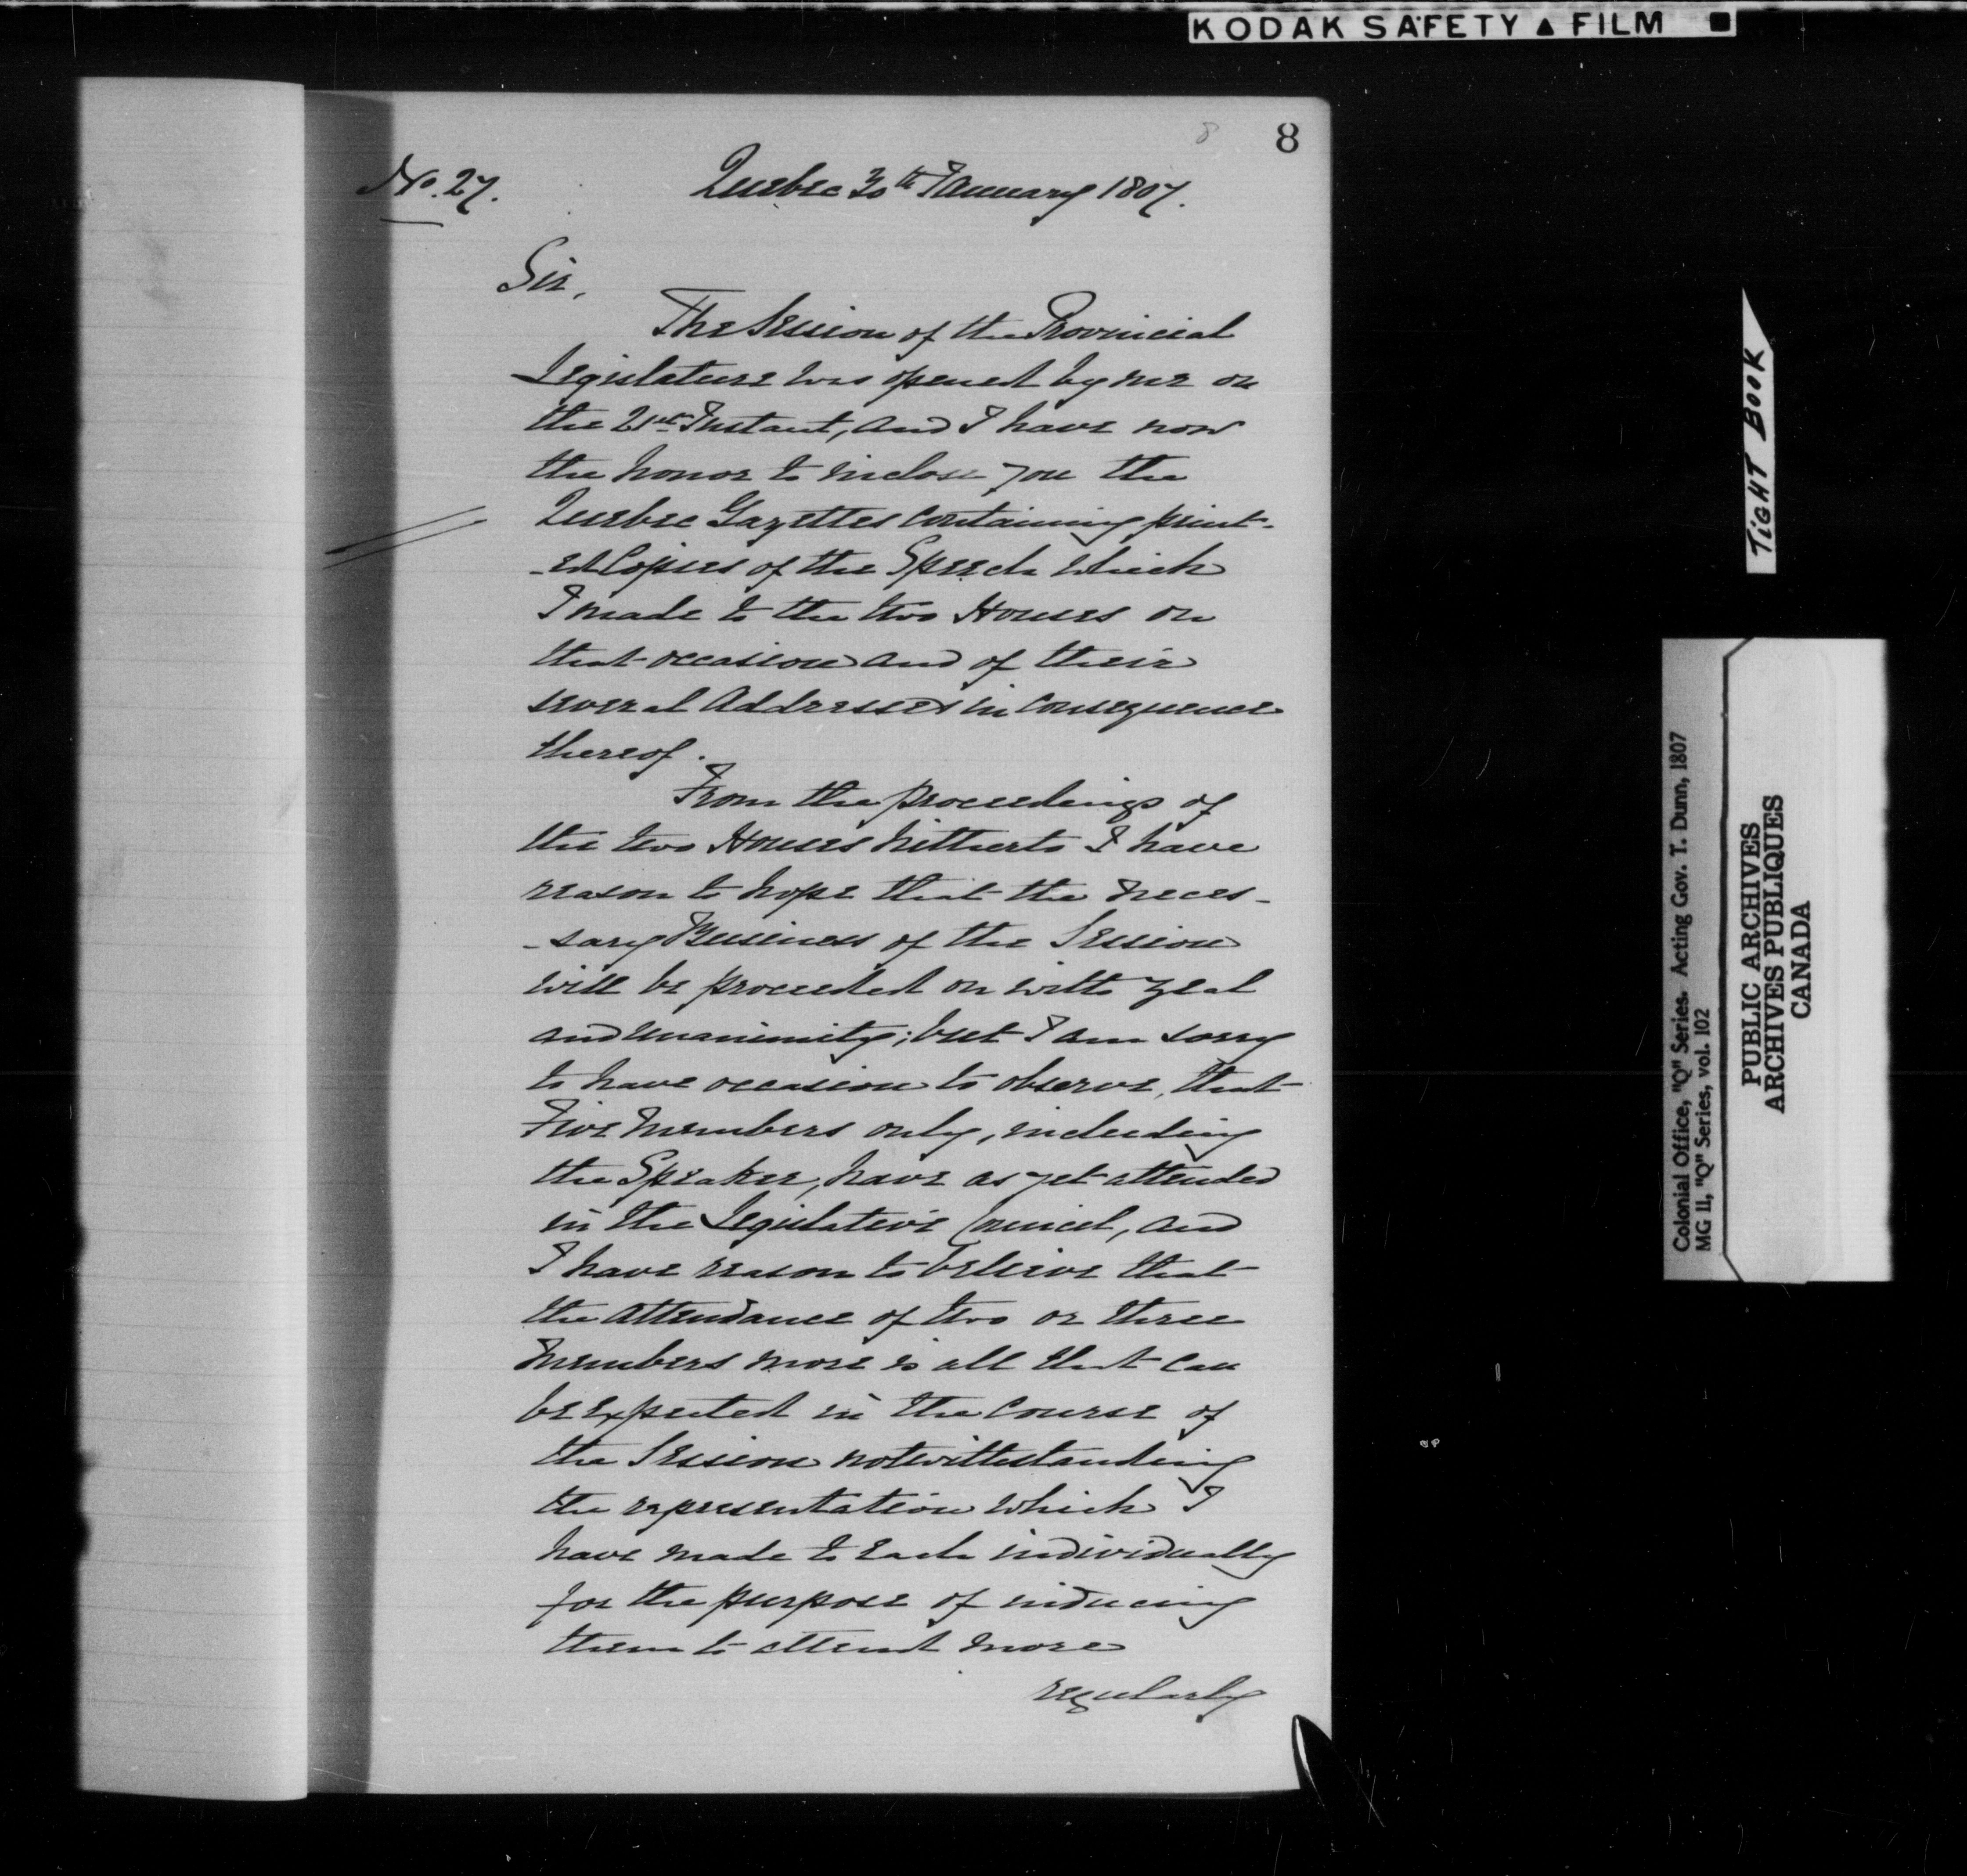 KODAK SAFETY ▲ FILM ■
8
8
No. 27.
Quebec 30th January 1807.
Sir,
The Session of the Provincial
Legislature was opened by me on
the 21st Instant, and I have now
the honor to inclose you the
Quebec Gazettes containing print-
-ed Copies of the Speech which
I made to the two Houses on
that occasion and of their
several Addresses in consequence
thereof.
From the proceedings of
the two Houses hitherto I have
reason to hope that the neces-
-sary Business of the Session
will be proceeded on with zeal
and unanimity; but I am sorry
to have occasion to observe, that
Five Members only, including
the Speaker, have as yet attended
in the Legislative Council, and
I have reason to believe that
the attendance of two or three
Members more is all that can
be expected in the course of
the Session notwithstanding
the representation which I
have made to each individually
for the purpose of inducing
them to attend more
regularly
TIGHT BOOK
Colonial Office, "Q" Series. Acting Gov. T. Dunn, 1807
MG 11, "Q" Series, vol. 102
PUBLIC ARCHIVES
ARCHIVES PUBLIQUES
CANADA